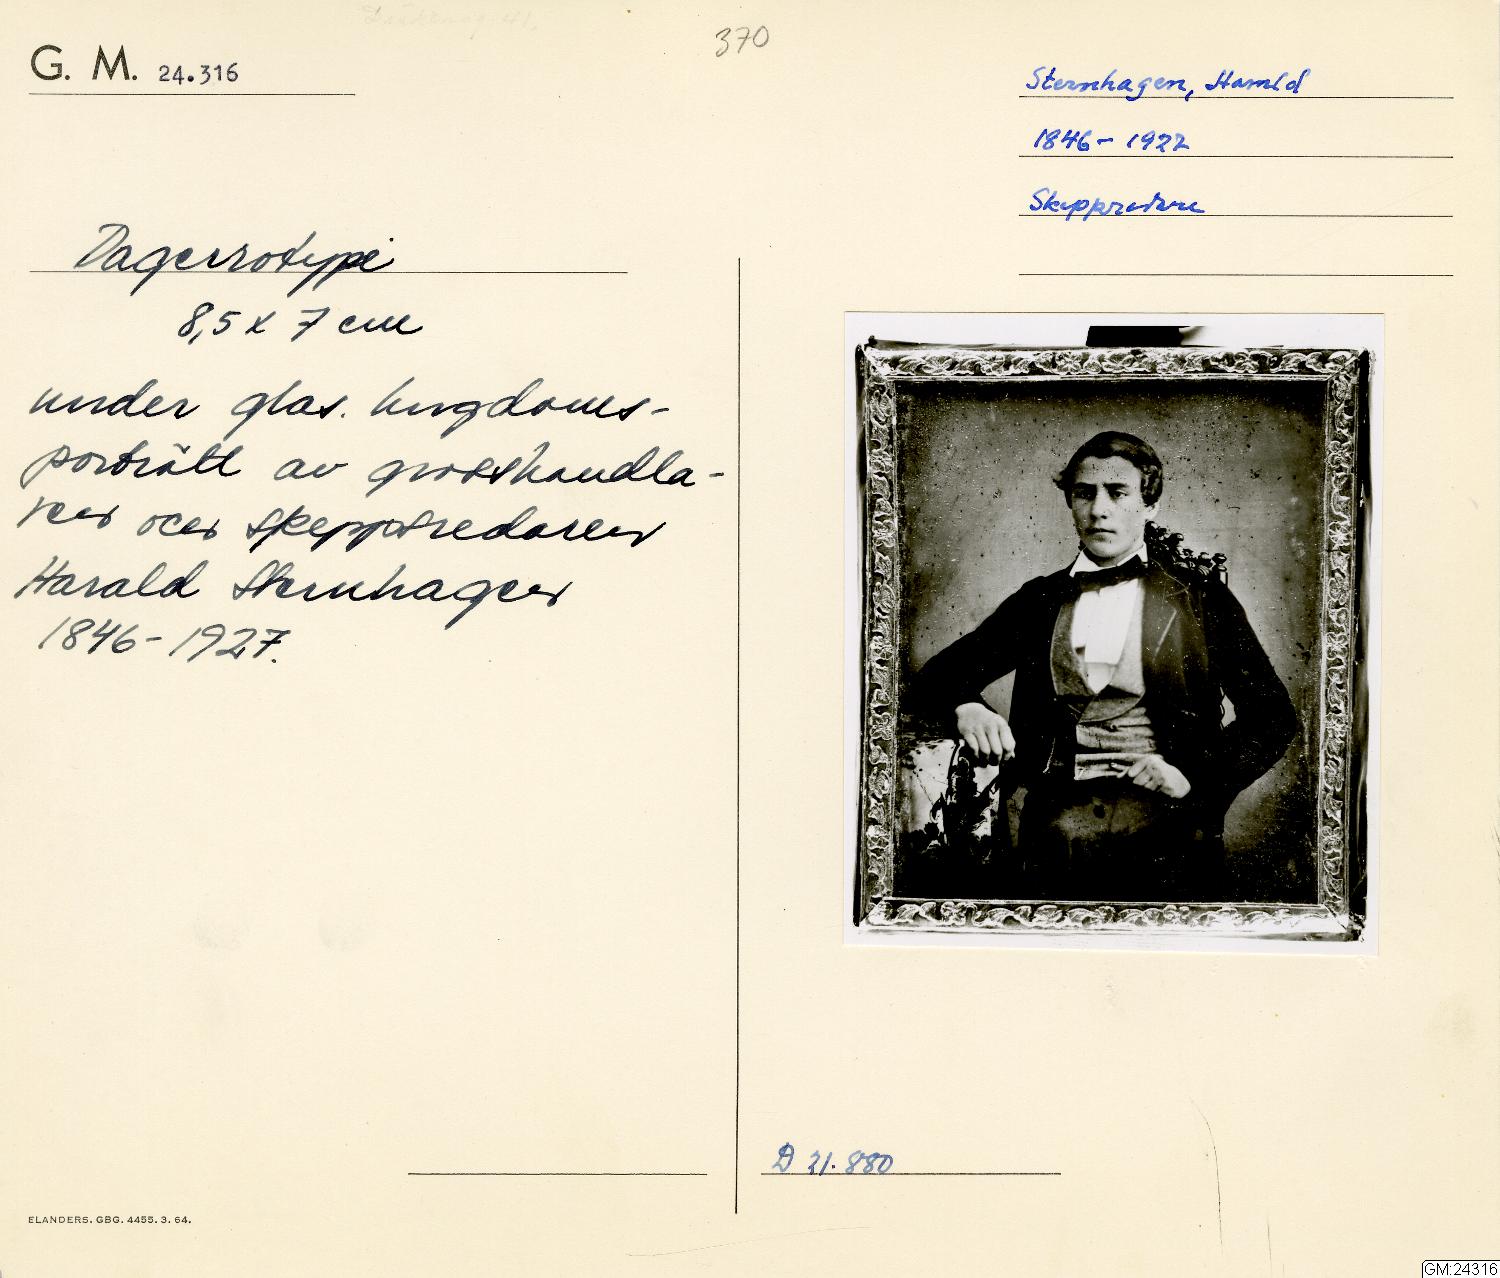 370
G. M. 24.316
Sternhagen, Harald
1846 - 1922
Skeppsredare
Dagerrotypi
8,5 x 7 cm
under glas. Ungdoms-
porträtt av grosshandla-
ren och skeppsredaren
Harald Sternhagen
1846 - 1927.
D 21.880
ELANDERS. GBG. 4455. 3. 64.
GM:24316